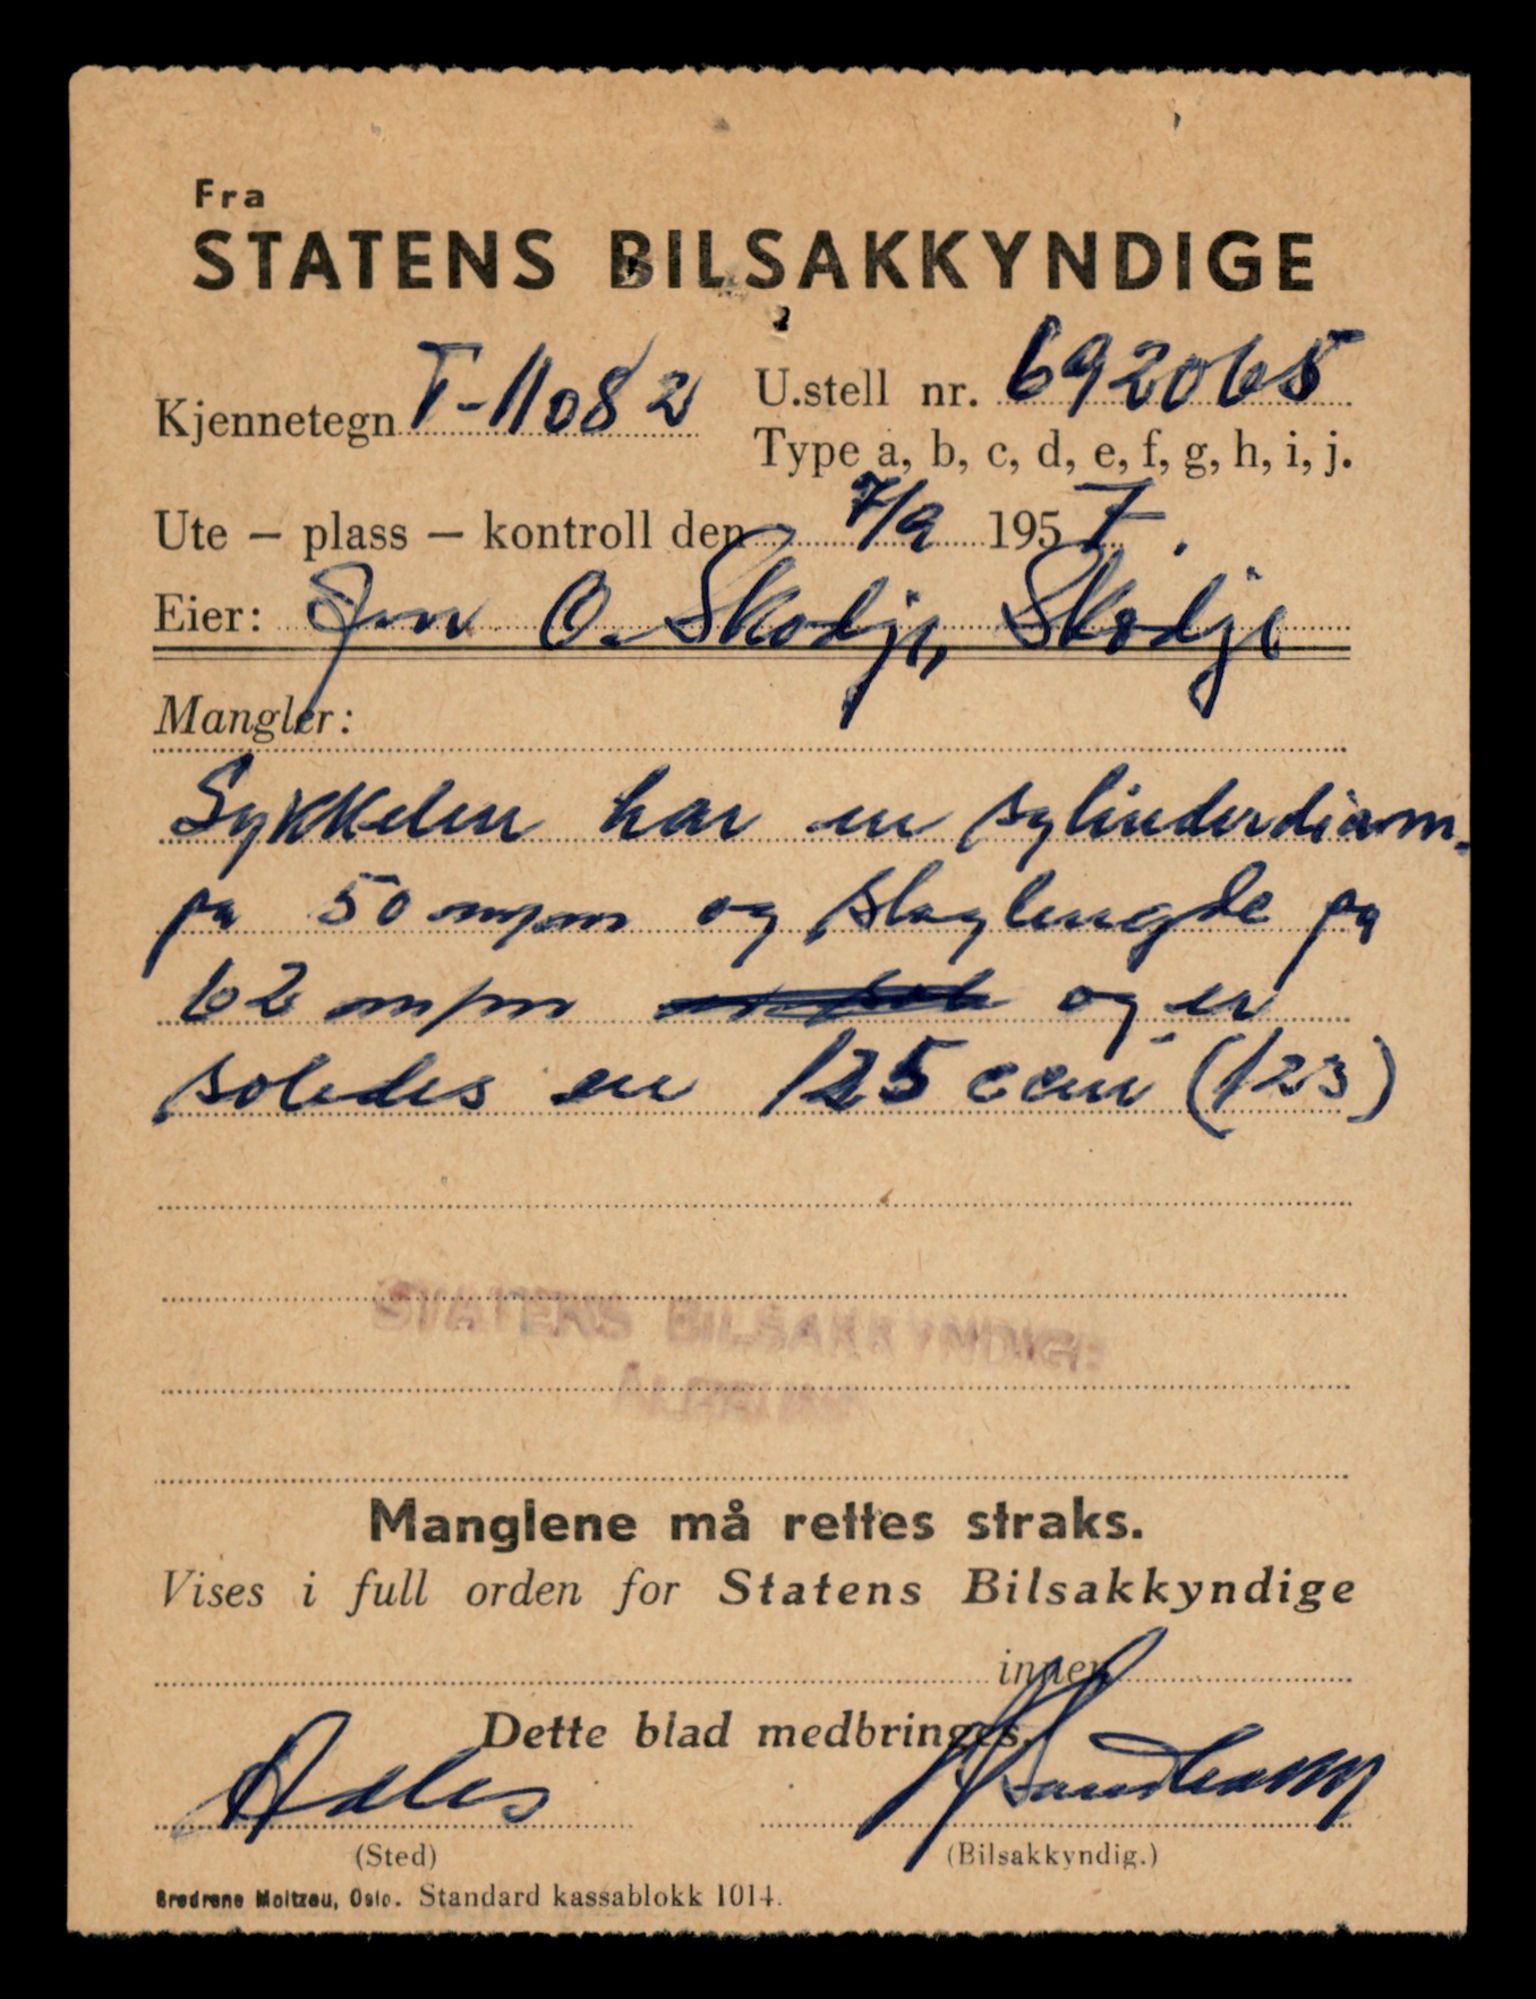 Fra
STATENS BILSAKKYNDIGE
Kjennetegn T-11082 U.stell nr. 692065
Type a, b, c, d, e, f, g, h, i, j.
Ute – plass – kontroll den 7/9 1957.
Eier: Jon O. Skodje, Skodje
Mangler:
Sykkelen har en sylinderdiam.
på 50 m/m og slaglengde på
62 m/m og er
således en 125 ccm (123)
STATENS BILSAKKYNDIGE
Manglene må rettes straks.
Vises i full orden for Statens Bilsakkyndige
innen
Dette blad medbringes.
(Sted) (Bilsakkyndig.)
Brødrene Moltzau, Oslo. Standard kassablokk 1014.